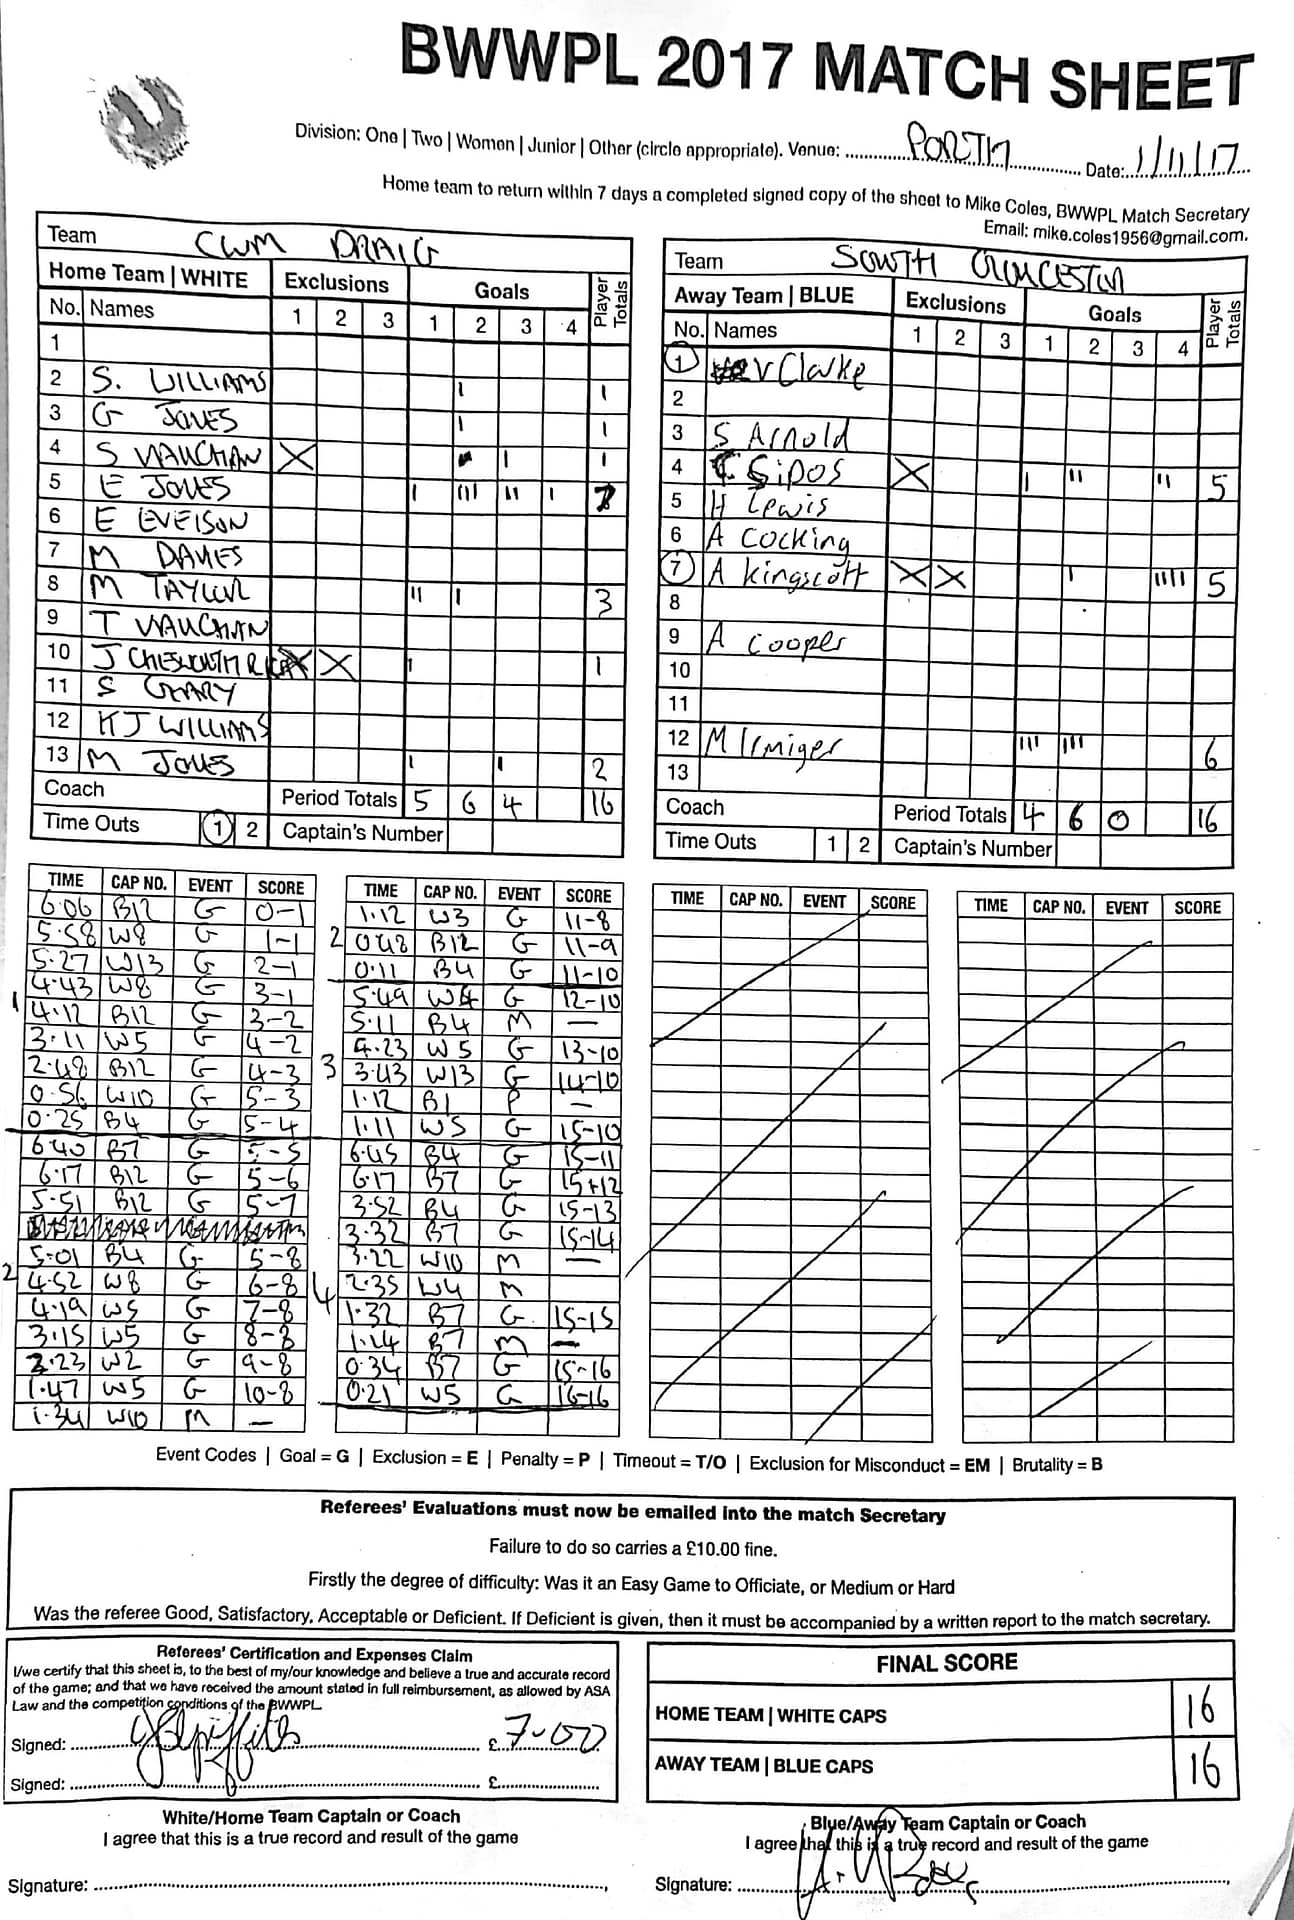 BWWPL 2017 MATCH SHEET
Division: One | Two | Women | Junior | Other (circle appropriate). Venue: PORTH Date: 1/11/17
Home team to return within 7 days a completed signed copy of the sheet to Mike Coles, BWWPL Match Secretary
Email: mike.coles1956@gmail.com.
Team CWM DRAIG
Home Team | WHITE Exclusions Goals Player Totals
No. Names 1 2 3 1 2 3 4
1
2 S. WILLIAMS I I
3 G JONES I I
4 S VAUGHAN X I I
5 E JONES I III II I
6 E EVEISON
7 M DAVIES
8 M TAYLOR II I 3
9 T VAUGHAN
10 J X X I I
11 S GEARY
12 KJ WILLIAMS
13 M JONES I I 2
Coach Period Totals 5 6 4 16
Time Outs 1 2 Captain's Number
Team SOUTH GLOUCESTER
Away Team | BLUE Exclusions Goals Player Totals
No. Names 1 2 3 1 2 3 4
1 V Clarke
2
3 S Arnold
4 SiPOS X I II II 5
5 H Lewis
6 A Cocking
7 A Kingscott X X I IIII 5
8
9 A Cooper
10
11
12 M Irmiger III III 6
13
Coach Period Totals 4 6 0 16
Time Outs 1 2 Captain's Number
TIME CAP NO. EVENT SCORE
6.06 B12 G 0-1
5.58 W8 G 1-1
5.27 W13 G 2-1
4.43 W8 G 3-1
1
4.12 B12 G 3-2
3.11 W5 G 4-2
2.48 B12 G 4-3
0.56 W10 G 5-3
0.25 B4 G 5-4
6.40 B7 G 5-5
6.17 B12 G 5-6
5.51 B12 G 5-7
5.01 B4 G 5-8
2
4.52 W8 G 6-8
4.19 W5 G 7-8
3.15 W5 G 8-8
2.23 W2 G 9-8
1.47 W5 G 10-8
1.34 W10 M —
TIME CAP NO. EVENT SCORE
1.12 W3 G 11-8
2
0.48 B12 G 11-9
0.11 B4 G 11-10
5.49 W4 G 12-10
5.11 B4 M —
4.23 W5 G 13-10
3
3.43 W13 G 14-10
1.12 B1 P —
1.11 W5 G 15-10
6.45 B4 G 15-11
6.17 B7 G 15-12
3.52 B4 G 15-13
3.32 B7 G 15-14
3.22 W10 M —
4
2.35 W4 M
1.32 B7 G 15-15
1.14 B7 M —
0.34 B7 G 15-16
0.21 W5 G 16-16
TIME CAP NO. EVENT SCORE
TIME CAP NO. EVENT SCORE
Event Codes | Goal = G | Exclusion = E | Penalty = P | Timeout = T/O | Exclusion for Misconduct = EM | Brutality = B
Referees' Evaluations must now be emailed into the match Secretary
Failure to do so carries a £10.00 fine.
Firstly the degree of difficulty: Was it an Easy Game to Officiate, or Medium or Hard
Was the referee Good, Satisfactory, Acceptable or Deficient. If Deficient is given, then it must be accompanied by a written report to the match secretary.
Referees' Certification and Expenses Claim
I/we certify that this sheet is, to the best of my/our knowledge and believe a true and accurate record
of the game; and that we have received the amount stated in full reimbursement, as allowed by ASA
Law and the competition conditions of the BWWPL.
Signed: £ 7-00
Signed: £
FINAL SCORE
HOME TEAM | WHITE CAPS 16
AWAY TEAM | BLUE CAPS 16
White/Home Team Captain or Coach
I agree that this is a true record and result of the game
Signature:
Blue/Away Team Captain or Coach
I agree that this is a true record and result of the game
Signature: